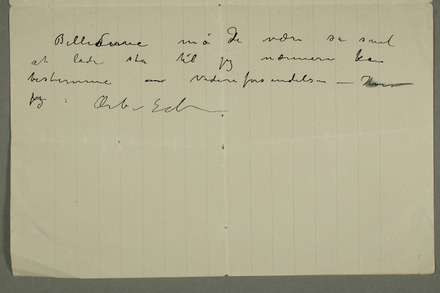 Billederne må De være så snil
at lade stå til jeg nærmere kan
bestemme om videreforsendelsen —
jeg